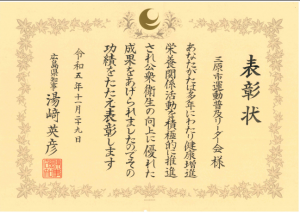 表彰状
三原市運動普及リーダー会 様
あなたがたは多年にわたり健康増進
栄養関係活動を積極的に推進
され公衆衛生の向上に優れた
成果をあげられましたのでその
功績をたたえ表彰します
令和五年十一月二十九日
広島県知事 湯﨑英彦